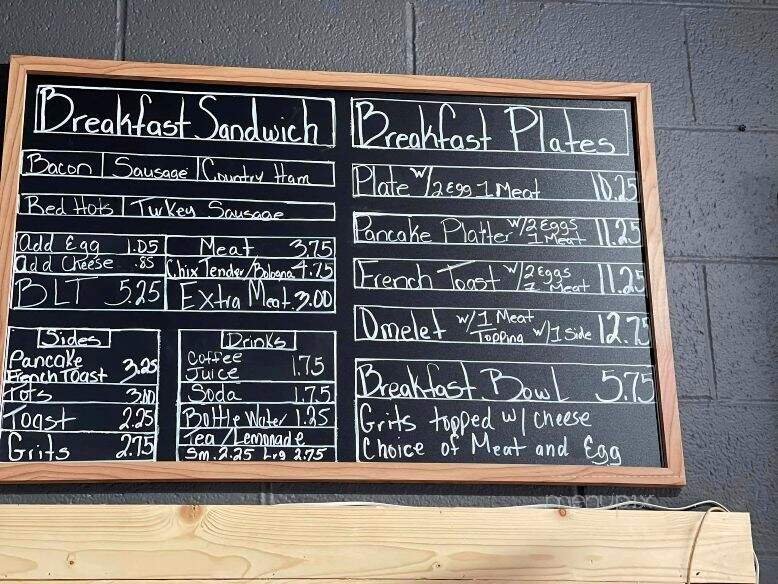 Breakfast Sandwich
Bacon Sausage Country Ham
Red Hots Turkey Sausage
add Egg 1.05
add Cheese .85
BLT 5.25
Meat 3.75
Chix Tender/Bologna 4.75
Extra Meat 3.00
Sides
Pancake
French Toast 3.25
Tots 3.00
Toast 2.25
Grits 2.75
Drinks
Coffee
Juice 1.75
Soda 1.75
Bottle Water 1.25
Tea/Lemonade
Sm. 2.25 Lrg 2.75
Breakfast Plates
Plate w/2 Egg 1 Meat 10.25
Pancake Platter w/2 Eggs 1 Meat 11.25
French Toast w/2 Eggs 1 Meat 11.25
Omelet w/1 Meat Topping w/1 Side 12.75
Breakfast Bowl 5.75
Grits topped w/ cheese
Choice of Meat and Egg
menupix